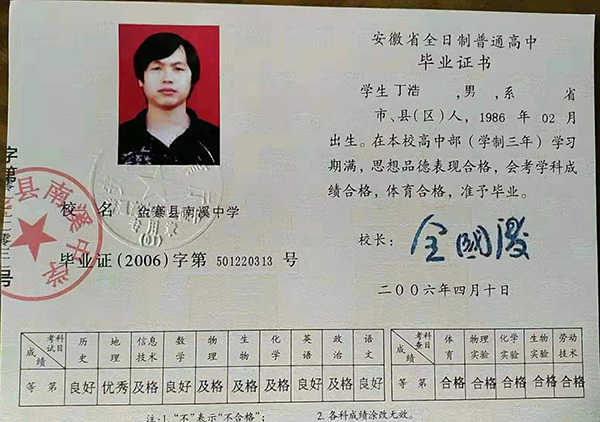 安徽省全日制普通高中
毕业证书
学生丁浩 ,男,系 省
市、县(区)人,1986 年 02 月
出生。在本校高中部(学制三年)学习
期满,思想品德表现合格,会考学科成
绩合格,体育合格,准予毕业。
校长:
二〇〇六年四月十日
校 名 金寨县南溪中学
专用章
毕业证(2006)字第 501220313 号
县南溪中学
字第
号
科目 考试 成绩 历史 地理 信息技术 数学 物理 生物 化学 英语 政治 语文
等 第 良好 优秀 及格 良好 及格 及格 及格 良好 及格 良好
科目 考查 成绩 体育 物理实验 化学实验 生物实验 劳动技术
等 第 合格 合格 合格 合格 合格
注:1.“不”表示“不合格”; 2.各科成绩涂改无效。